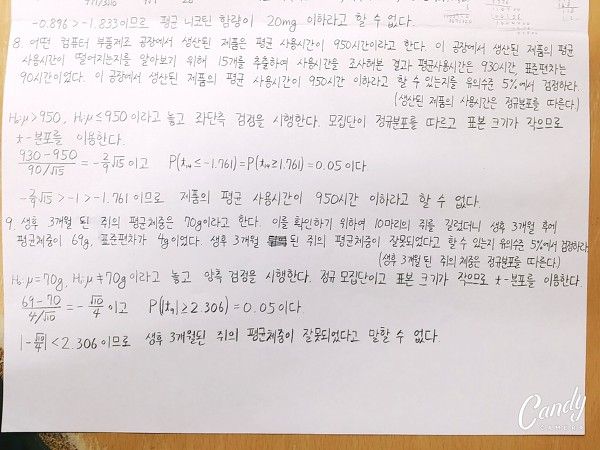 -0.896 > -1.833이므로 평균 니코틴 함량이 20mg 이하라고 할 수 없다.
8. 어떤 컴퓨터 부품제조 공장에서 생산된 제품은 평균 사용시간이 950시간이라고 한다. 이 공장에서 생산된 제품의 평균
사용시간이 떨어지는지를 알아보기 위하여 15개를 추출하여 사용시간을 조사해본 결과 평균사용시간은 930시간, 표준편차는
90시간이었다. 이 공장에서 생산된 제품의 평균 사용시간이 950시간 이하라고 할 수 있는지를 유의수준 5%에서 검정하라.
(생산된 제품의 사용시간은 정규분포를 따른다.)
H₀:μ>950, H₁:μ≤950이라고 놓고 좌단측 검정을 시행한다. 모집단이 정규분포를 따르고 표본 크기가 작으므로
t-분포를 이용한다.
(930-950)/(90/√15) = -2/9√15이고 P(t₁₄≤-1.761)=P(t₁₄≥1.761)=0.05이다.
-2/9√15 > -1 > -1.761이므로 제품의 평균 사용시간이 950시간 이하라고 할 수 없다.
9. 생후 3개월 된 쥐의 평균체중은 70g이라고 한다. 이를 확인하기 위하여 10마리의 쥐를 길렀더니 생후 3개월 후에
평균체중이 69g, 표준편차가 4g이었다. 생후 3개월 된 쥐의 평균체중이 잘못되었다고 할 수 있는지 유의수준 5%에서 검정하라.
(생후 3개월 된 쥐의 체중은 정규분포를 따른다.)
H₀:μ=70g, H₁:μ≠70g이라고 놓고 양측 검정을 시행한다. 정규 모집단이고 표본 크기가 작으므로 t-분포를 이용한다.
(69-70)/(4/√10) = -√10/4이고 P(|t₉|≥2.306)=0.05이다.
|-√10/4|<2.306이므로 생후 3개월된 쥐의 평균체중이 잘못되었다고 말할 수 없다.
Candy
CAMERA